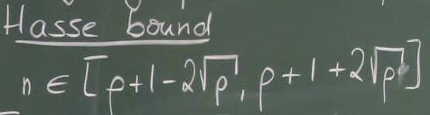 Hasse bound
n ∈ [p+1-2√p, p+1+2√p]